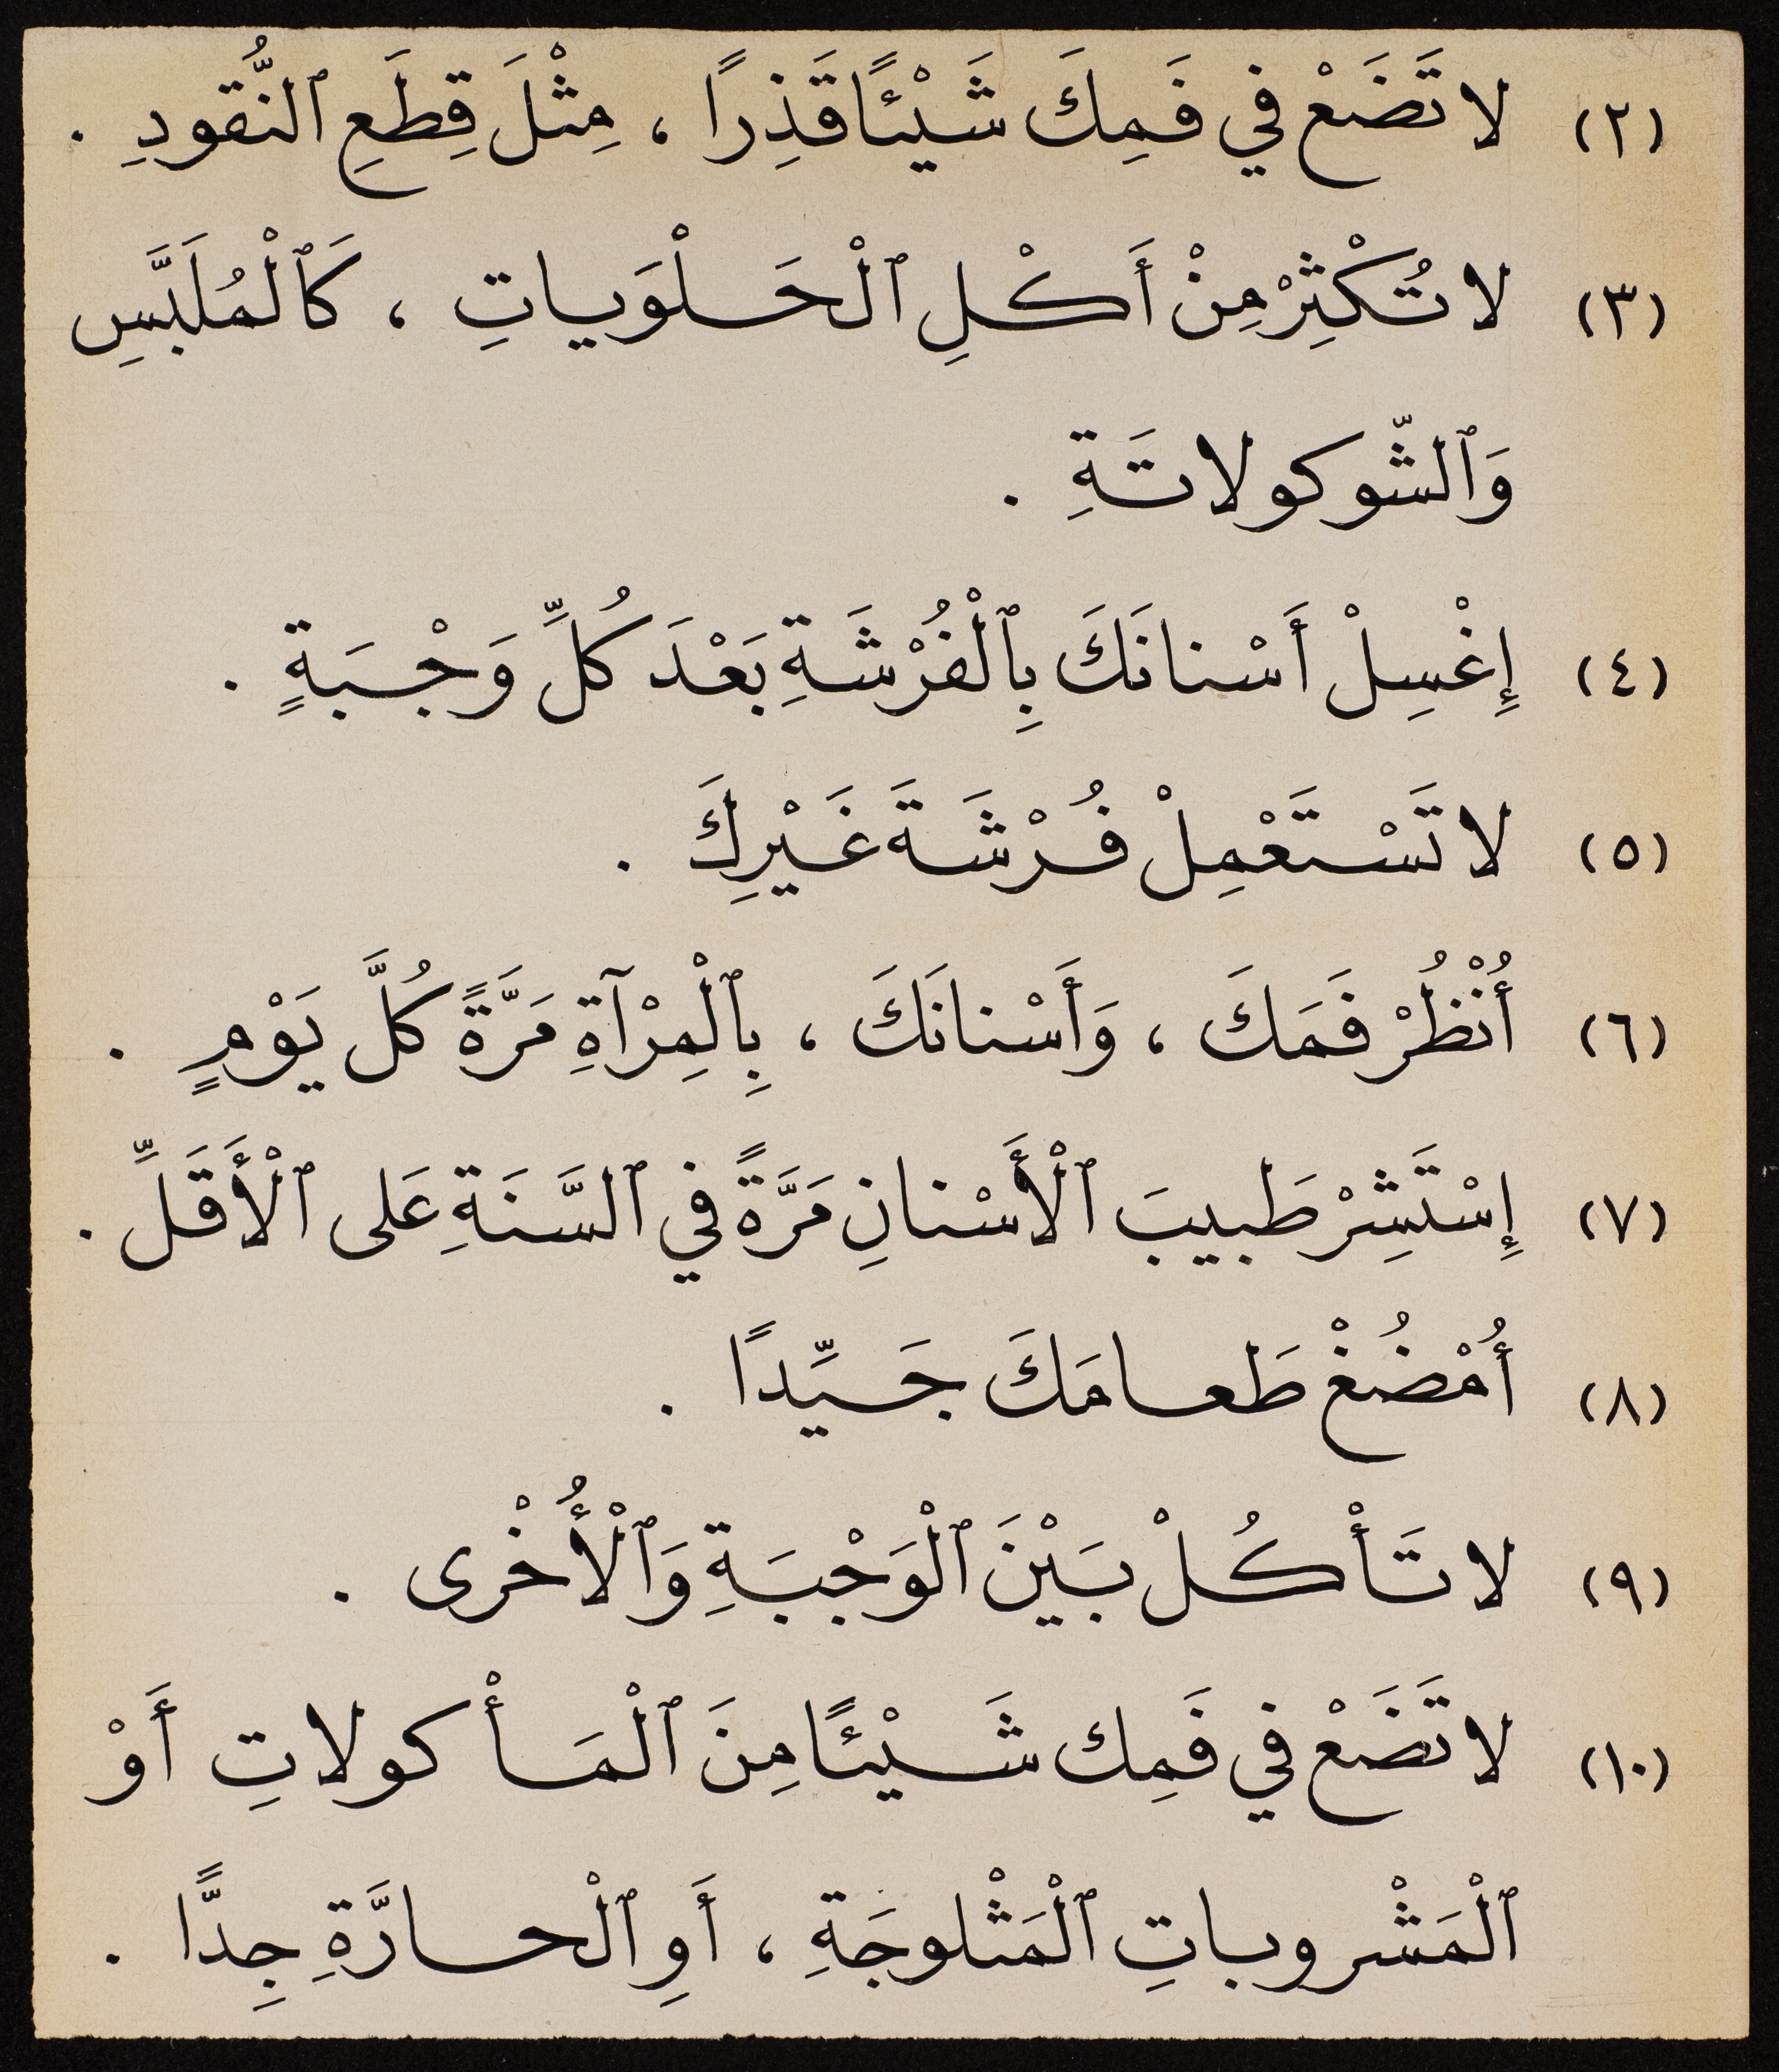 (٢) لا تَضَعْ في فَمِكَ شَيْئًا قَذِرًا ، مِثْلَ قِطَعِ ٱلنُّقودِ .
(٣) لا تُكْثِرْ مِنْ أَكْلِ ٱلْحَلْوَياتِ ، كَٱلْمُلَبَّسِ
وَٱلشّوكولاتَةِ .
(٤) إِغْسِلْ أَسْنانَكَ بِٱلْفُرْشَةِ بَعْدَ كُلِّ وَجْبَةٍ .
(٥) لا تَسْتَعْمِلْ فُرْشَةَ غَيْرِكَ .
(٦) أُنْظُرْ فَمَكَ ، وَأَسْنانَكَ ، بِٱلْمِرْآةِ مَرَّةً كُلَّ يَوْمٍ .
(٧) إِسْتَشِرْ طَبيبَ ٱلْأَسْنانِ مَرَّةً في ٱلسَّنَةِ عَلى ٱلْأَقَلِّ .
(٨) أُمْضُغْ طَعامَكَ جَيِّدًا .
(٩) لا تَأْكُلْ بَيْنَ ٱلْوَجْبَةِ وَٱلْأُخْرى .
(١٠) لا تَضَعْ في فَمِك شَيْئًا مِنَ ٱلْمَأْكولاتِ أَوْ
ٱلْمَشْروباتِ ٱلْمَثْلوجَةِ ، أَوِ ٱلْحارَّةِ جِدًّا .